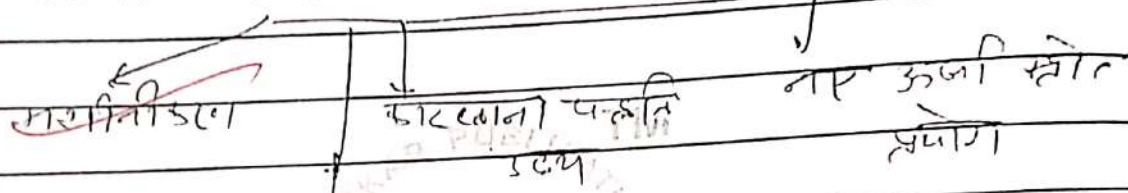 मशीनीकरण
कारखाना पद्धति
उदय
नए ऊर्जा स्त्रोत
प्रयोग